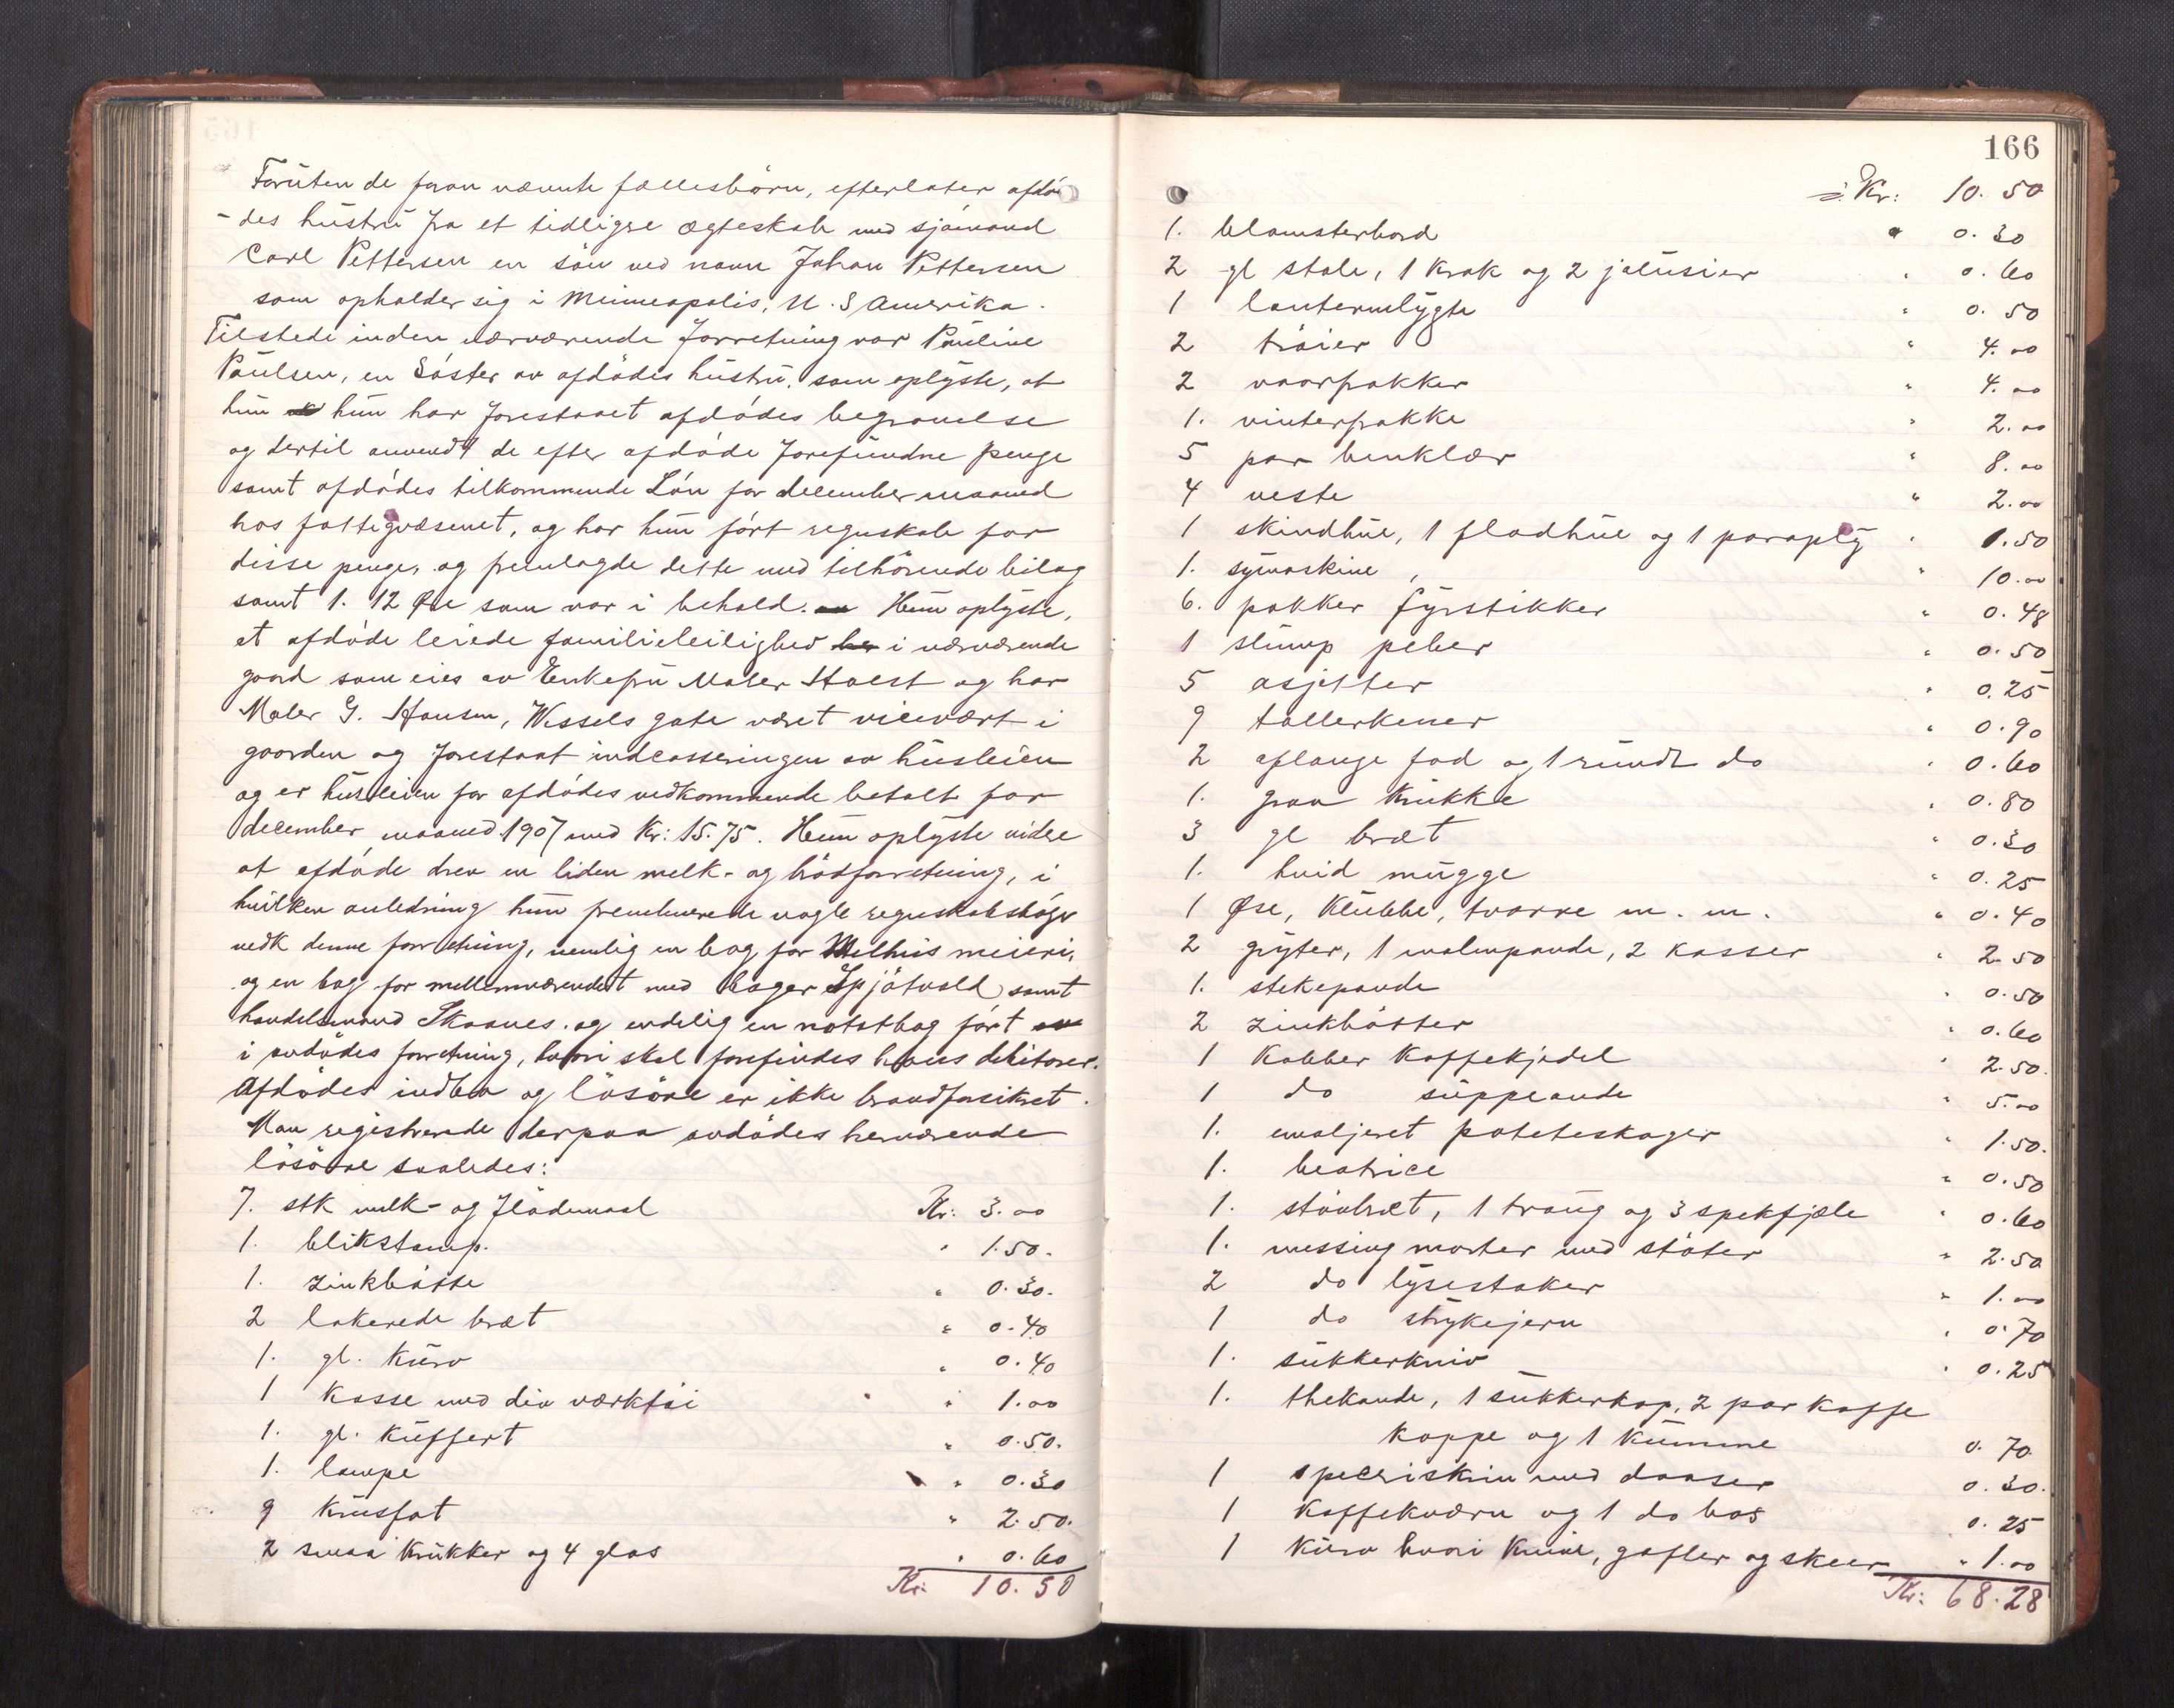 Foruten de foran nævnte fællesbörn, efterlater afdö
-des hustru fra et tidligre ægteskab med sjömand
Carl Pettersen en sön ved navn Johan Pettersen
som opholder sig i Minneapolis, U. S Amerika.
Tilstede inden nærværende forretning var Pauline
Paulsen, en Söster av afdödes hustru, som oplyste, at
hun hun har forestaaet afdödes begravelse
og dertil anvendt de efter afdöde forefundne penge
samt afdödes tilkommende Lön for december maaned
hos fattigvæsenet, og har hun fört regnskab for
disse penge, og fremlagde dette med tilhörende bilag
samt 1. 12 Öre som var i behold. Hun oplyste,
at afdöde leiede familieleilighed i nærværende
gaard som eies av Enkefru Maler Holst og har
Maler G. Hansen, Wessels gate været vicevært i
gaarden og forestaat indcasseringen av husleien
og er husleien for afdödes vedkommende betalt for
december maaned 1907 med Kr: 15.75. Hun oplyste videre
at afdöde drev en liden melk- og brödforretning, i
hvilken anledning hun fremleverede nogle regnskabsböger
vedk denne forretning, nemlig en bog for Melhus meieri,
og en bog for mellemværendet med bager Spjötvold samt
handelsmand Skaanes. og endelig en notatbog fört
i avdödes forretning, hvori skal forefindes hans debitorer.
Afdödes indbo og lösöre er ikke brandforsikret.
Man registrerede derpaa avdödes herværende
lösöre saaledes:
7. stk melk- og flödemaal Kr: 3.00
1. blikstamp. " 1.50.
1. zinkbötte " 0.30.
2 lakerede bræt " 0.40
1. gl. kurv " 0.40
1 kasse med div værktöi " 1.00
1. gl. kuffert " 0.50.
1. lampe " 0.30
9 krusfat " 2.50.
2 smaa krukker og 4 glas " 0.60
Kr: 10.50
166
Kr: 10.50
1. blomsterbord " 0.30
2 gl stole, 1 krak og 2 jalusier " 0.60
1 lanternlygte " 0.50
2 tröier " 4.00
2 vaarfrakker " 4.00
1. vinterfrakke " 2.00
5 par benklær " 8.00
4 veste " 2.00
1 skindhue, 1 fladhue og 1 paraply " 1.50
1. symaskine " 10.00
6. pakker fyrstikker " 0.48
1 slump peber " 0.50
5 asjetter " 0.25
9 tallerkener " 0.90
2 aflange fad og 1 rundt do " 0.60
1. graa krukke " 0.80
3 gl bræt " 0.30
1. hvid mugge " 0.25
1 Öse, klubbe, tvarre m. m. " 0.40
2 gryter, 1 malmpande, 2 kasser " 2.50
1. stekepande " 0.50
2 zinkbötter " 0.60
1 kobber kaffekjedel " 2.50.
1 do suppeande " 5.00
1. emaljeret poteteskoger " 1.50.
1. beatrice " 0.50
1. stövbræt, 1 traug og 3 spekfjæle " 0.60
1. messing morter med stöter " 2.50
2 do lysestaker " 1.00
1 do strykejern " 0.70
1. sukkerkniv " 0.25
1. thekande, 1 sukkerkop, 2 par kaffe
koppe og 1 kumme 0.70
1 speceriskrin med daaser 0.30.
1 kaffekværn og 1 do bös 0.25
1 kurv hvori knive, gafler og skeer " 1.00
Kr: 68.28